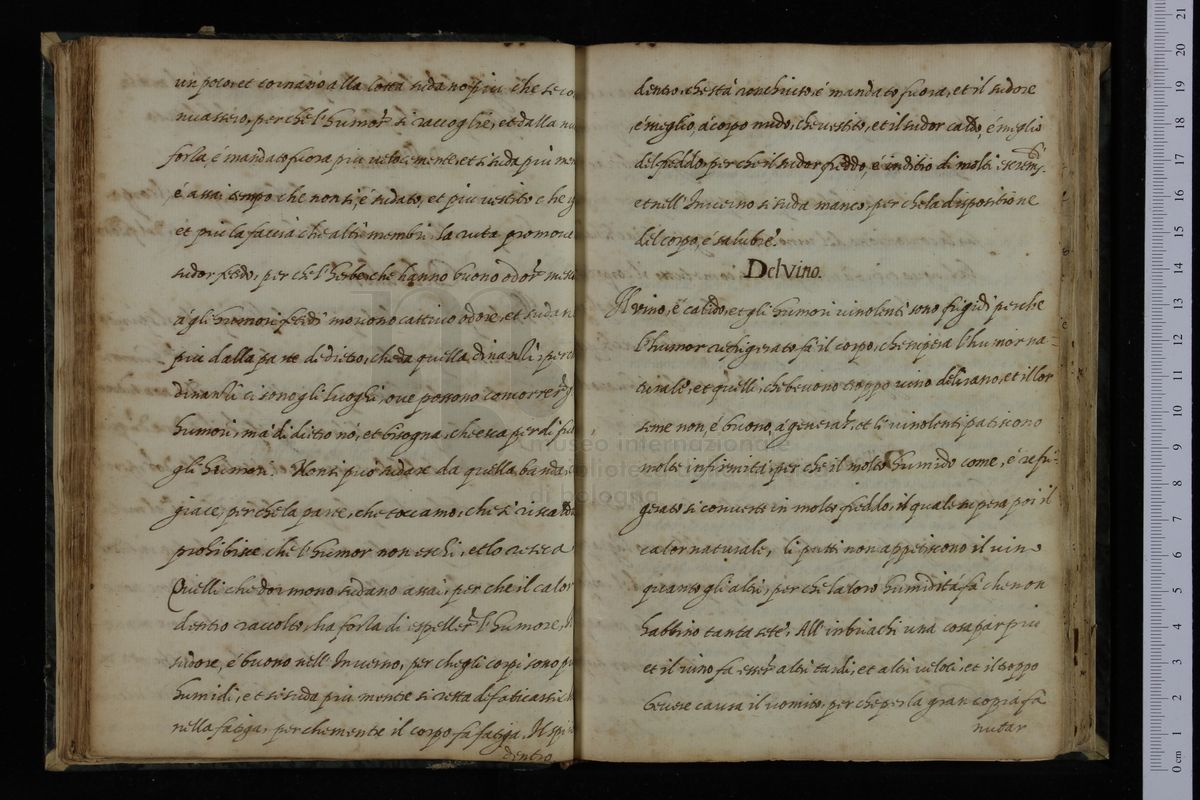 un poco, et tornano alla lotta sudano piu che se co
nuassero, perche l'humor si raccoglie, et dalla
forza é mandato fuora piu velocemente et si suda piu
é assai tempo che non si é sudato, et piu vestito che
et piu la faccia che altri membri la ruta promove
sudor fetido, perche l'herbe che hanno buono odor
á gli humori fetidi movono cattivo odore, et sudan
piu dalla parte di dietro, che da quella dinanzi, perc
dinanzi ci sono gli luoghi, ove possono concorrer
humori, má di dietro nó, et bisogna, che esca per di
gli humori. Non si puo sudare da quella banda,
giace, perche la parte, che toccamo, che si riscalda
prohibisce che l'humor non eschi, et lo
Quelli che dormono sudano assai, perche il calor
dentro raccolto, ha forza di espeller l'humore,
sudore, é buono nell'Inverno, perche gli corpi sono
humidi, et si suda piu mentre si resta
nella fatiga, perche mentre il corpo fa fatiga, Il spi
dentro
dentro, che stá rinchiuso, é mandato fuora, et il sudore
é meglio, á corpo nudo, che vestito, et il sudor caldo, é meglio
del freddo, perche il sudor freddo, é inditio di molti
et nell'Inverno si suda manco, perche la dispositione
del corpo, é salubre.
Del vino.
Il vino, é calido, et gli humori vinolenti sono frigidi perche
l'humor refrigerato fa il corpo, che supera l'humor na-
turale, et quelli, che bevono troppo vino delirano, et il lor
seme non, é buono, á generar, et li vinolenti patiscono
molte infirmitá, perche il molto humido come, é refri-
gerato si converte in molto freddo, il quale supera poi il
calor naturale, li putti non appetiscono il vino
quanto gli altri, perche la loro humiditá fa che non
habbino tanta sete, All'imbriachi una cosa par piu
et il vino fa esser altri tardi, et altri veloci, et il troppo
bevere causa il vomito, perche per la gran copia fa
nutar
museo internazionale
biblioteca
di bologna
0 cm 1 2 3 4 5 6 7 8 9 10 11 12 13 14 15 16 17 18 19 20 21